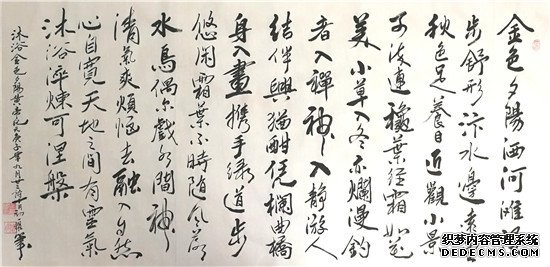 金色夕陽洒河滩
步舒形汴水邊
秋色足養目近觀小景
連穐葉經霜如花
美小草入冬亦爛漫釣
者入禪神入静游人
结伴興猶酣凭欄曲橋
身入畫携手绿道步
悠闲霜葉不時随风落
水鳥偶尔戲水間神
清氣爽煩惱去融入自然
心自寬天地之間有靈氣
沐浴淬煉可涅槃
沐浴金色夕陽黄 庚子年九月
织梦内容管理系统
DEDECMS.COM